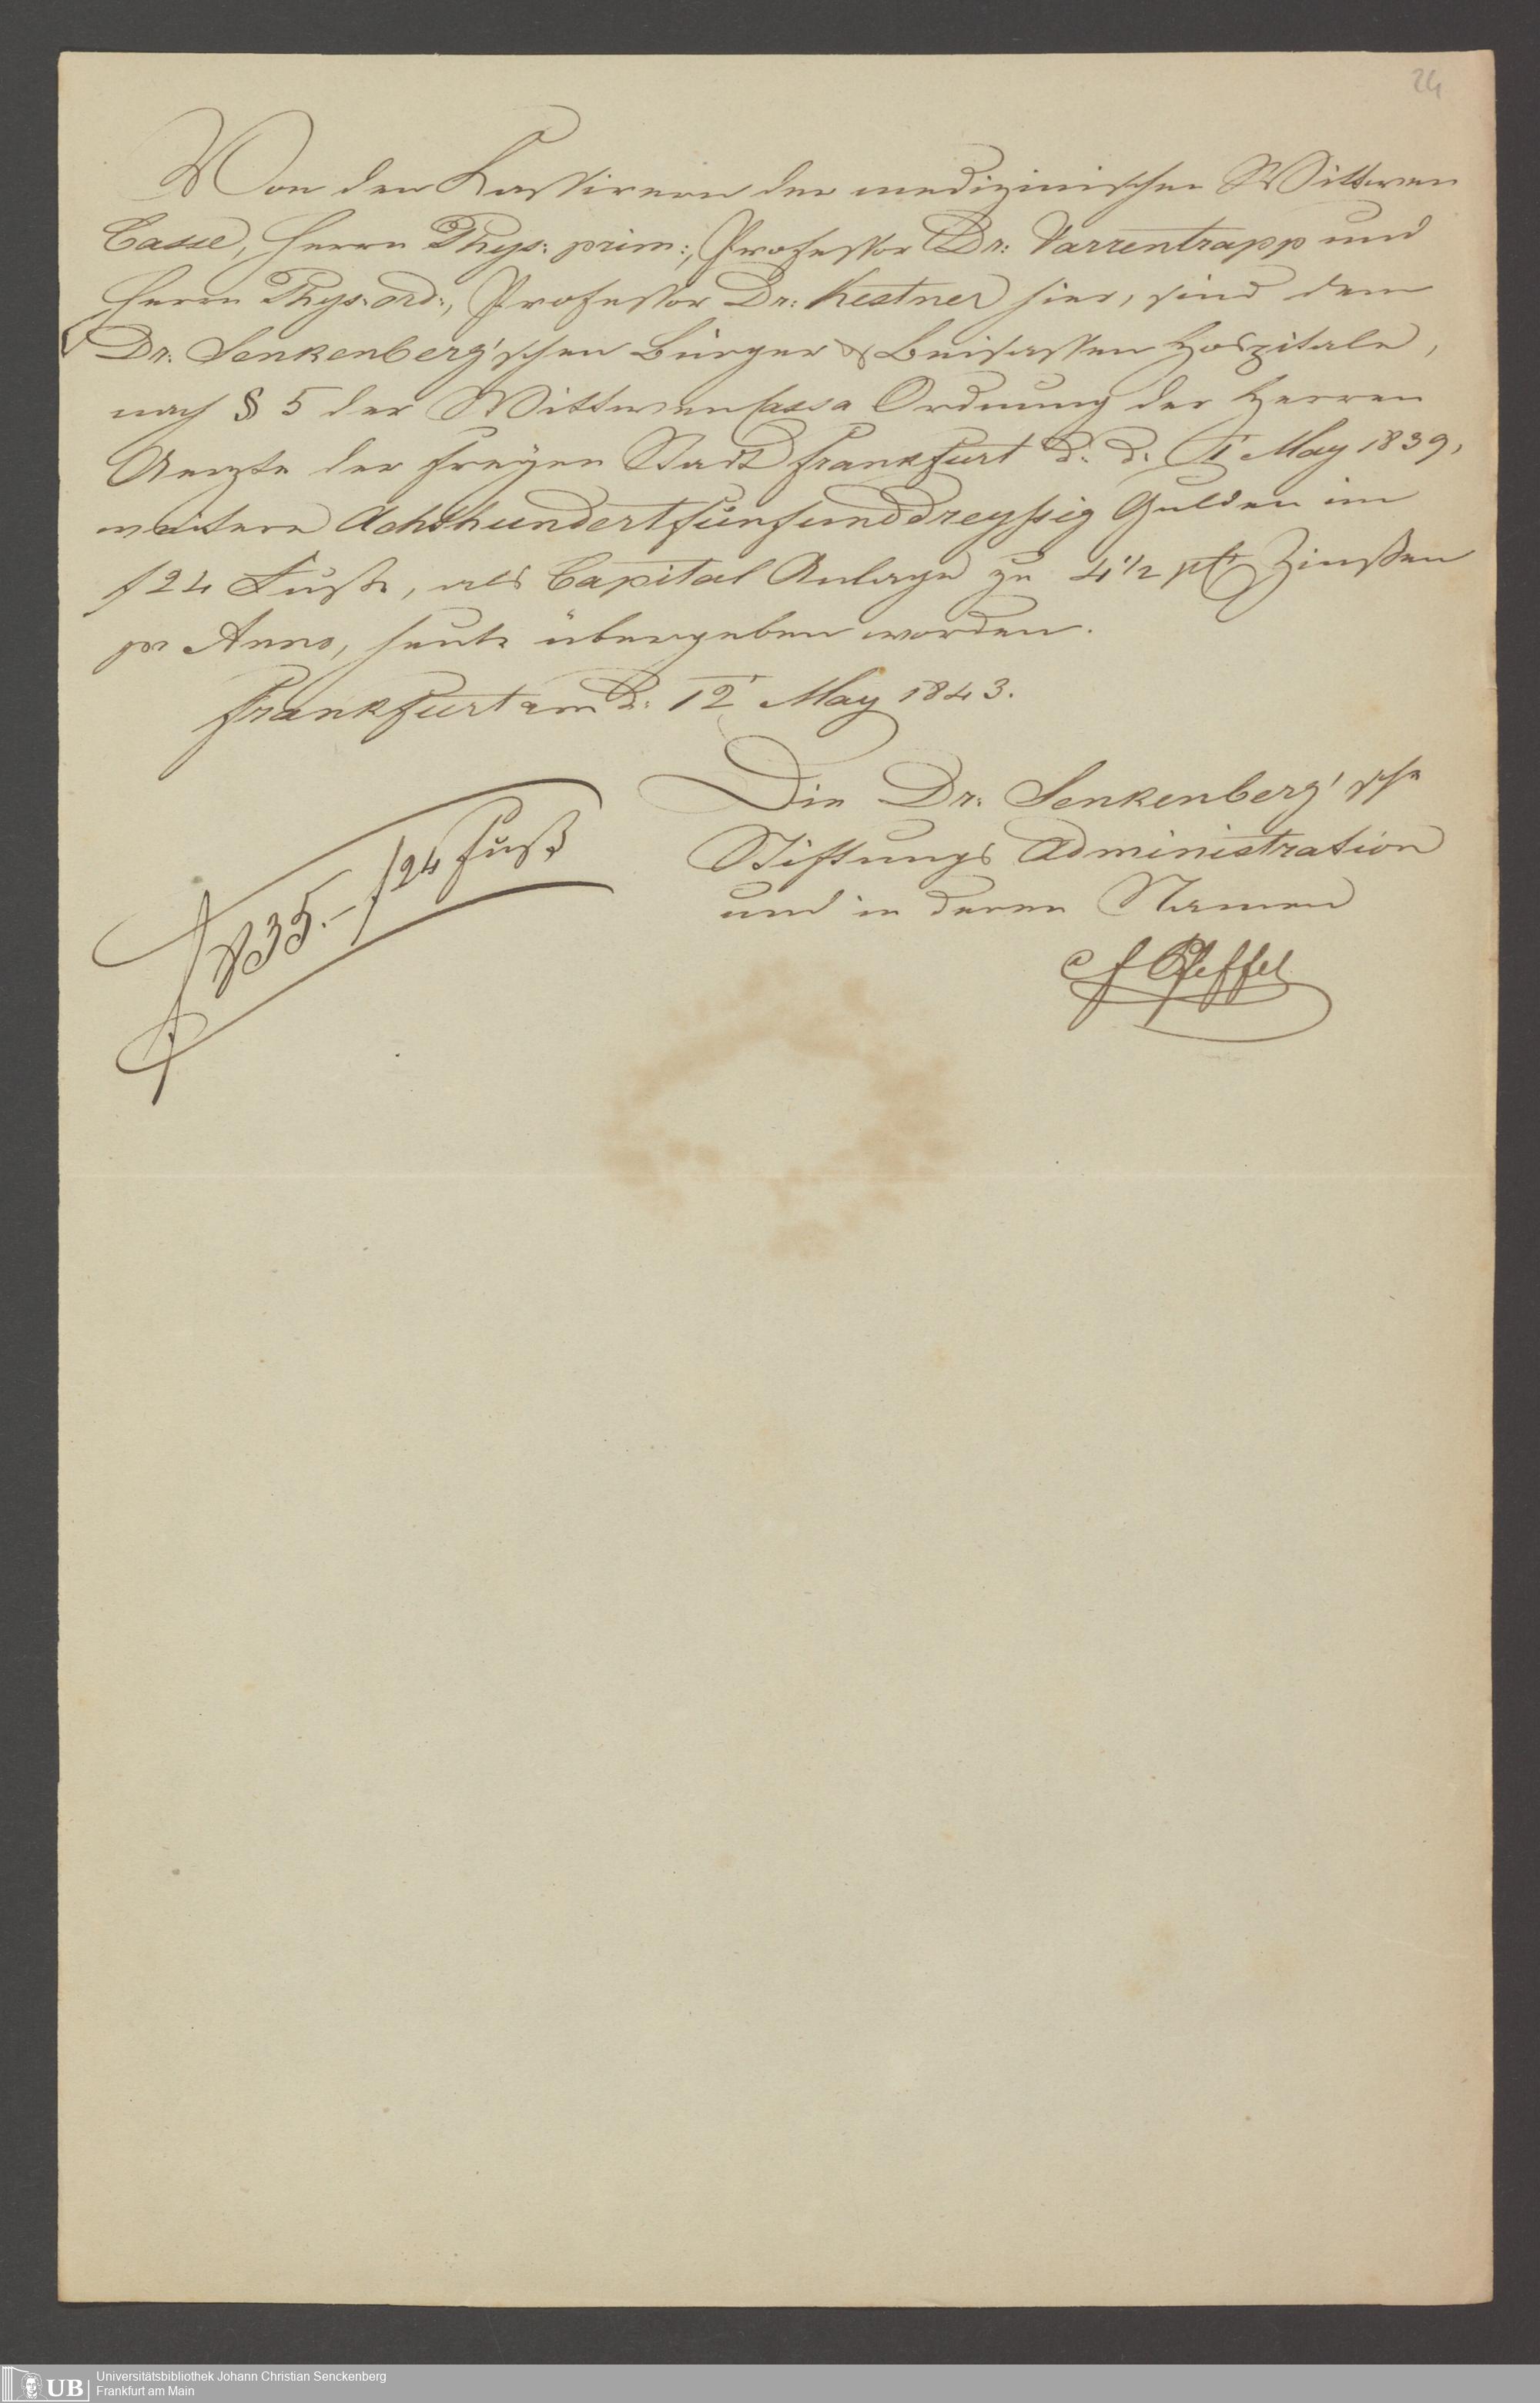 24
Von den Kassirern der medizinischen Wittwen
Casse, Herrn Phys: prim:, Professor Dr: Varrentrapp und
Herrn Phys: ord:, Professor Dr: Kestner hier, sind dem
Dr: Senkenberg'schen Bürger & Beisassen Hospitale,
nach § 5 der Wittwen Cassa Ordnung der Herren
Aerzte der freyen Stadt Frankfurt d. d. 1 May 1839,
weitere Achthundertfünfunddreyßig Gulden im
f 24 Fuße, als Capital Anlage zu 4 1/2 pCt Zinßen
pr Anno, heute übergeben worden.
Frankfurt am d: 12 May 1843.
Die Dr: Senkenberg'sche
Stiftungs Administration
und in deren Namen
f 835.– f 24 Fuß
C f Pfeffel
UB Universitätsbibliothek Johann Christian Senckenberg
Frankfurt am Main